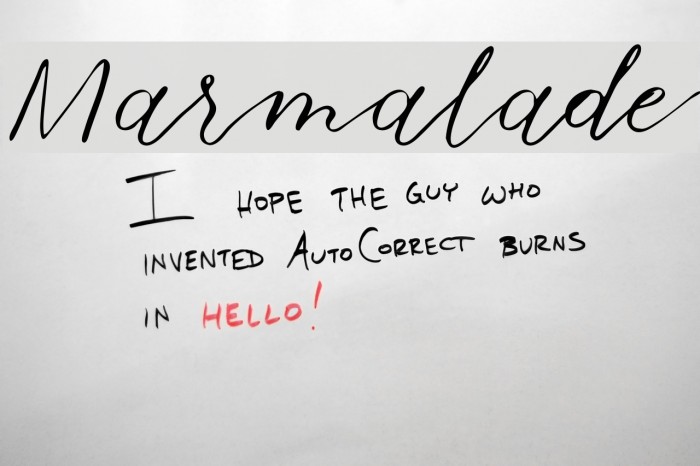 Marmalade
I HOPE THE GUY WHO
INVENTED AUTOCORRECT BURNS
IN HELLO!